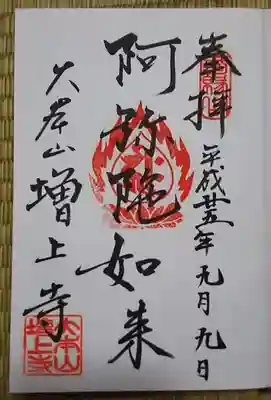 奉拝
平成廿五年 月九日
阿弥陀如来
大本山増上寺
大本山
増上寺